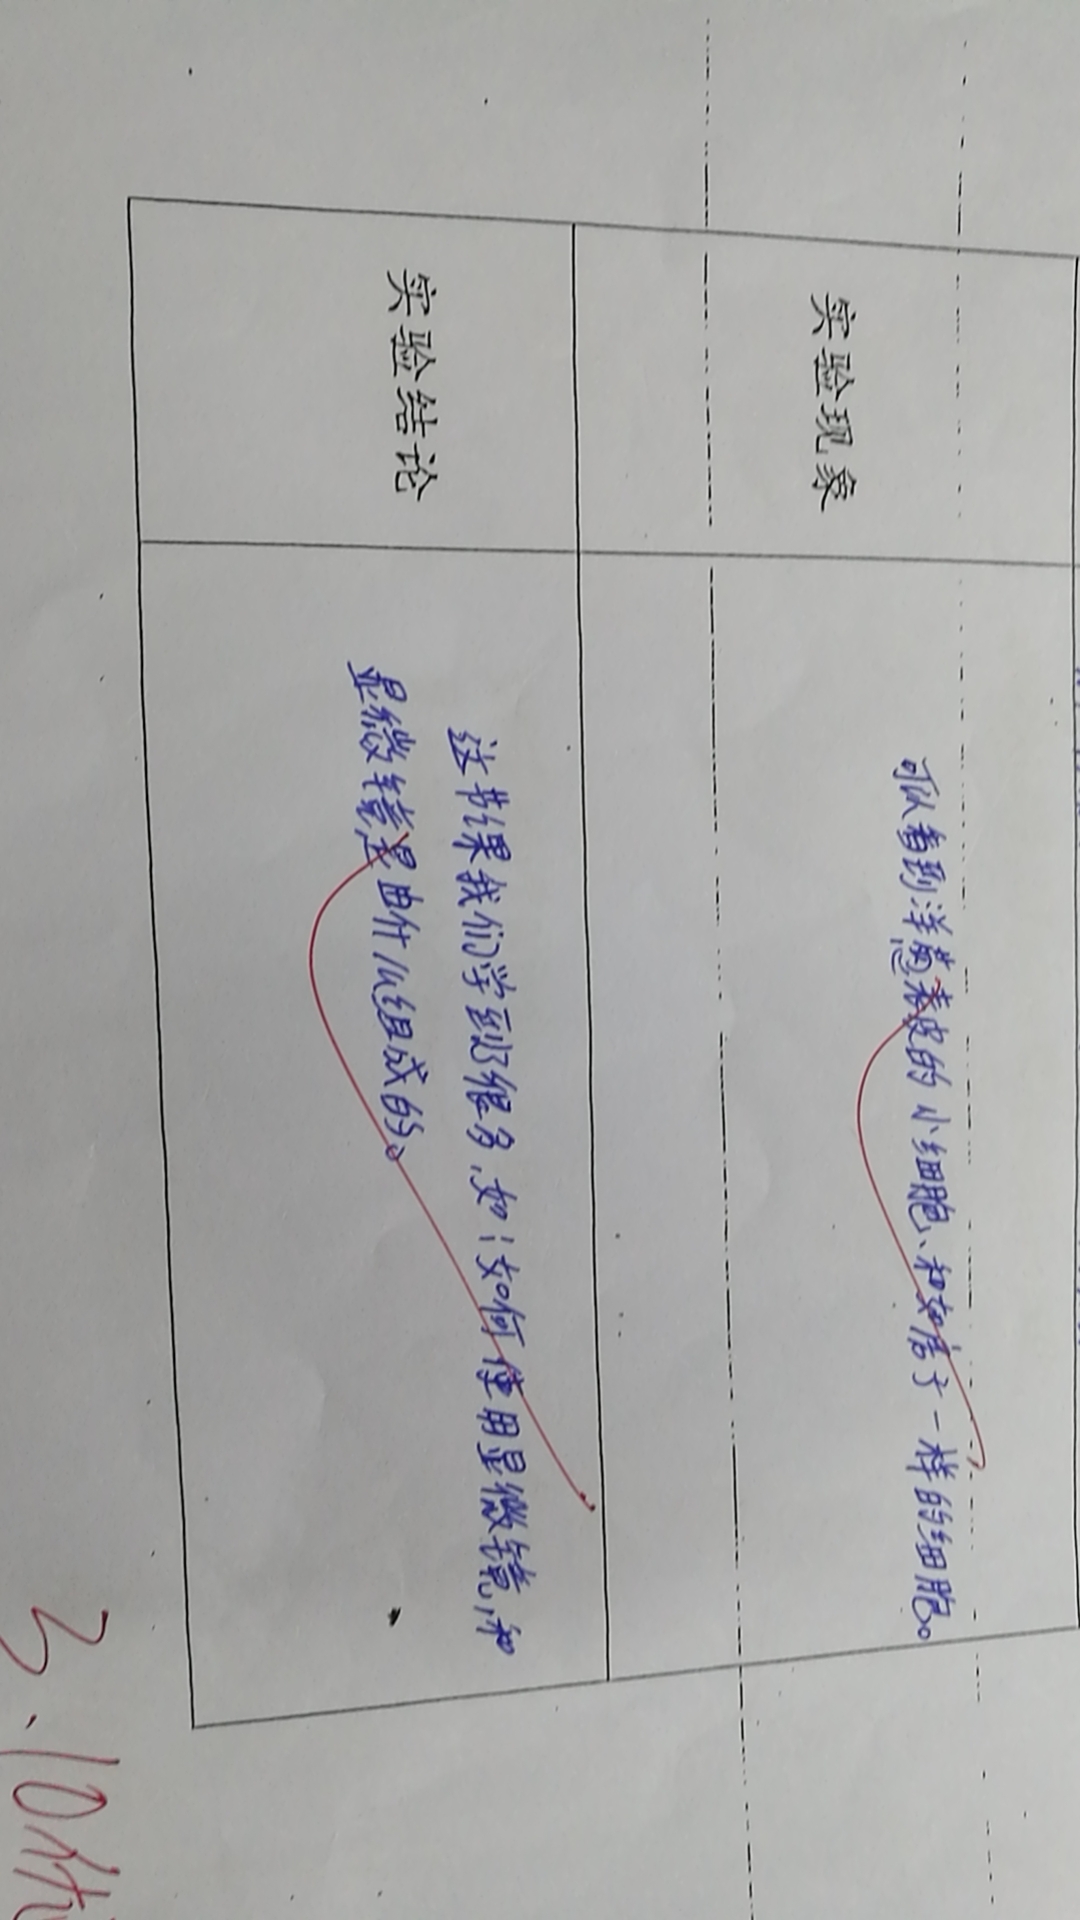 实验现象
可以看到洋葱表皮的小细胞、和如房子一样的细胞。
实验结论
这节课我们学到了很多,如:如何使用显微镜,和
显微镜是由什么组成的。
3.10